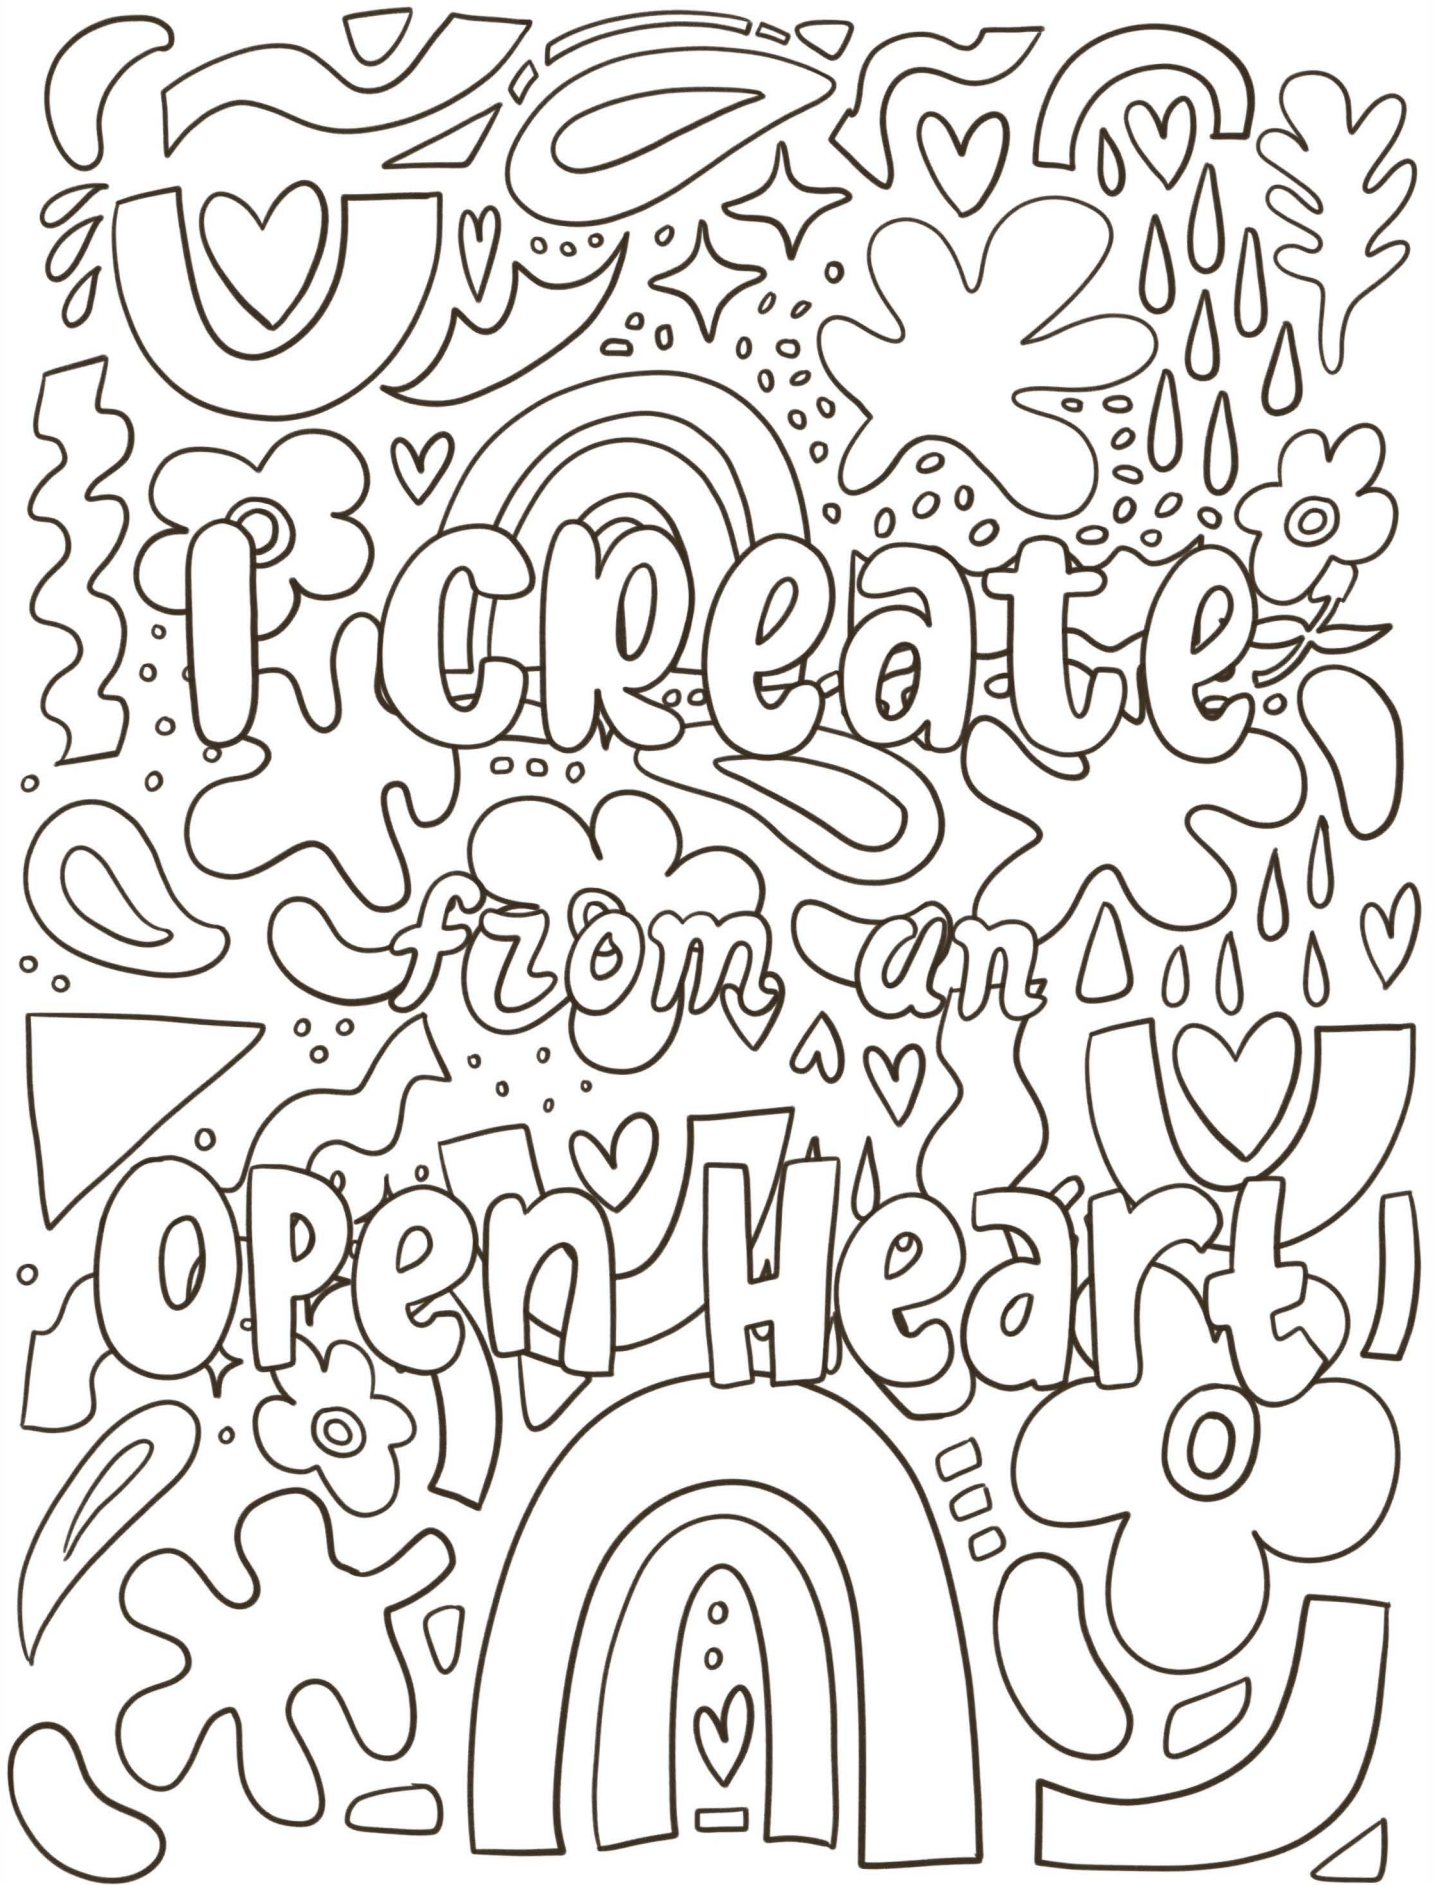 I CReate
from an
Open Heart